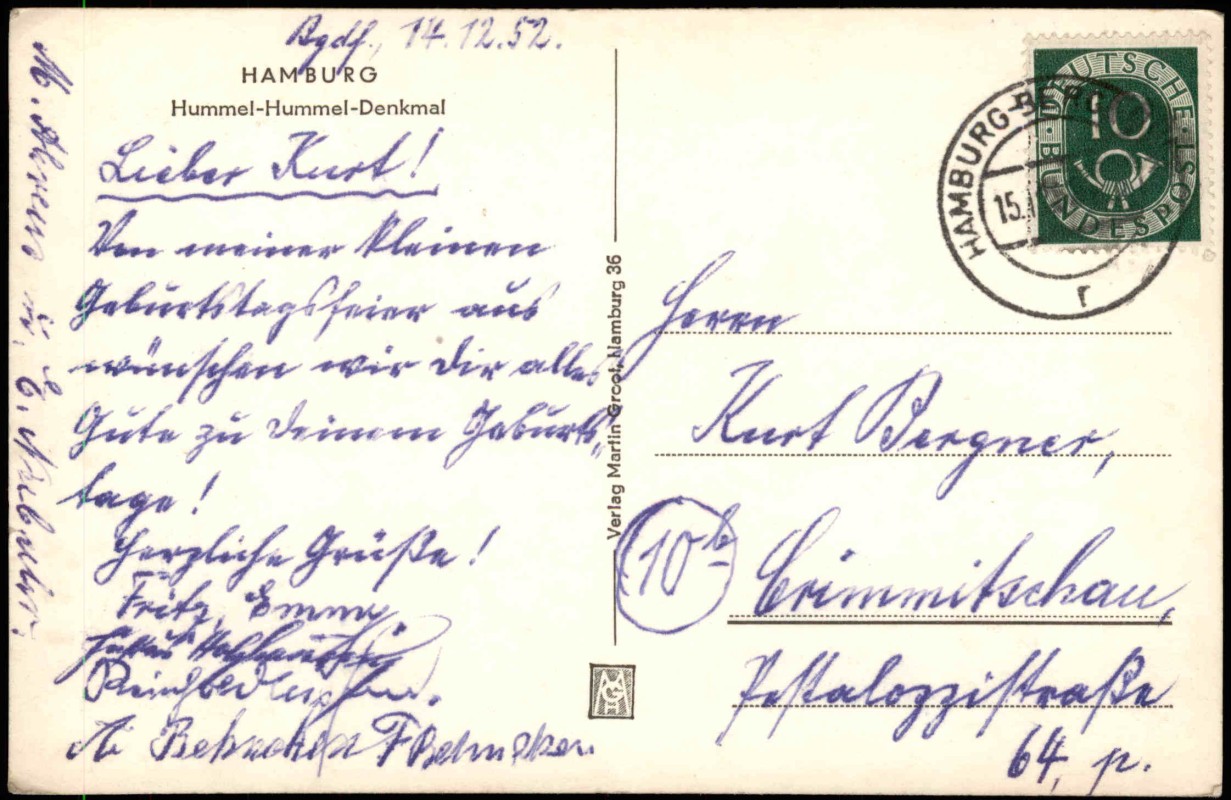 Bgdf., 14.12.52.
HAMBURG
Hummel-Hummel-Denkmal
Lieber Kurt!
Von meiner kleinen
Geburtstagsfeier aus
wünschen wir Dir alles
Gute zu Deinem Geburts-
tage!
Herzliche Grüße!
Fritz, Emmy
F Behncken
M.
u.
E.
Verlag Martin Groot, Hamburg 36
DEUTSCHE BUNDESPOST
10
HAMBURG-BERG
15.
r
Herrn
Kurt Bergner,
10b
Crimmitschau,
Pestalozzistraße
64, p.